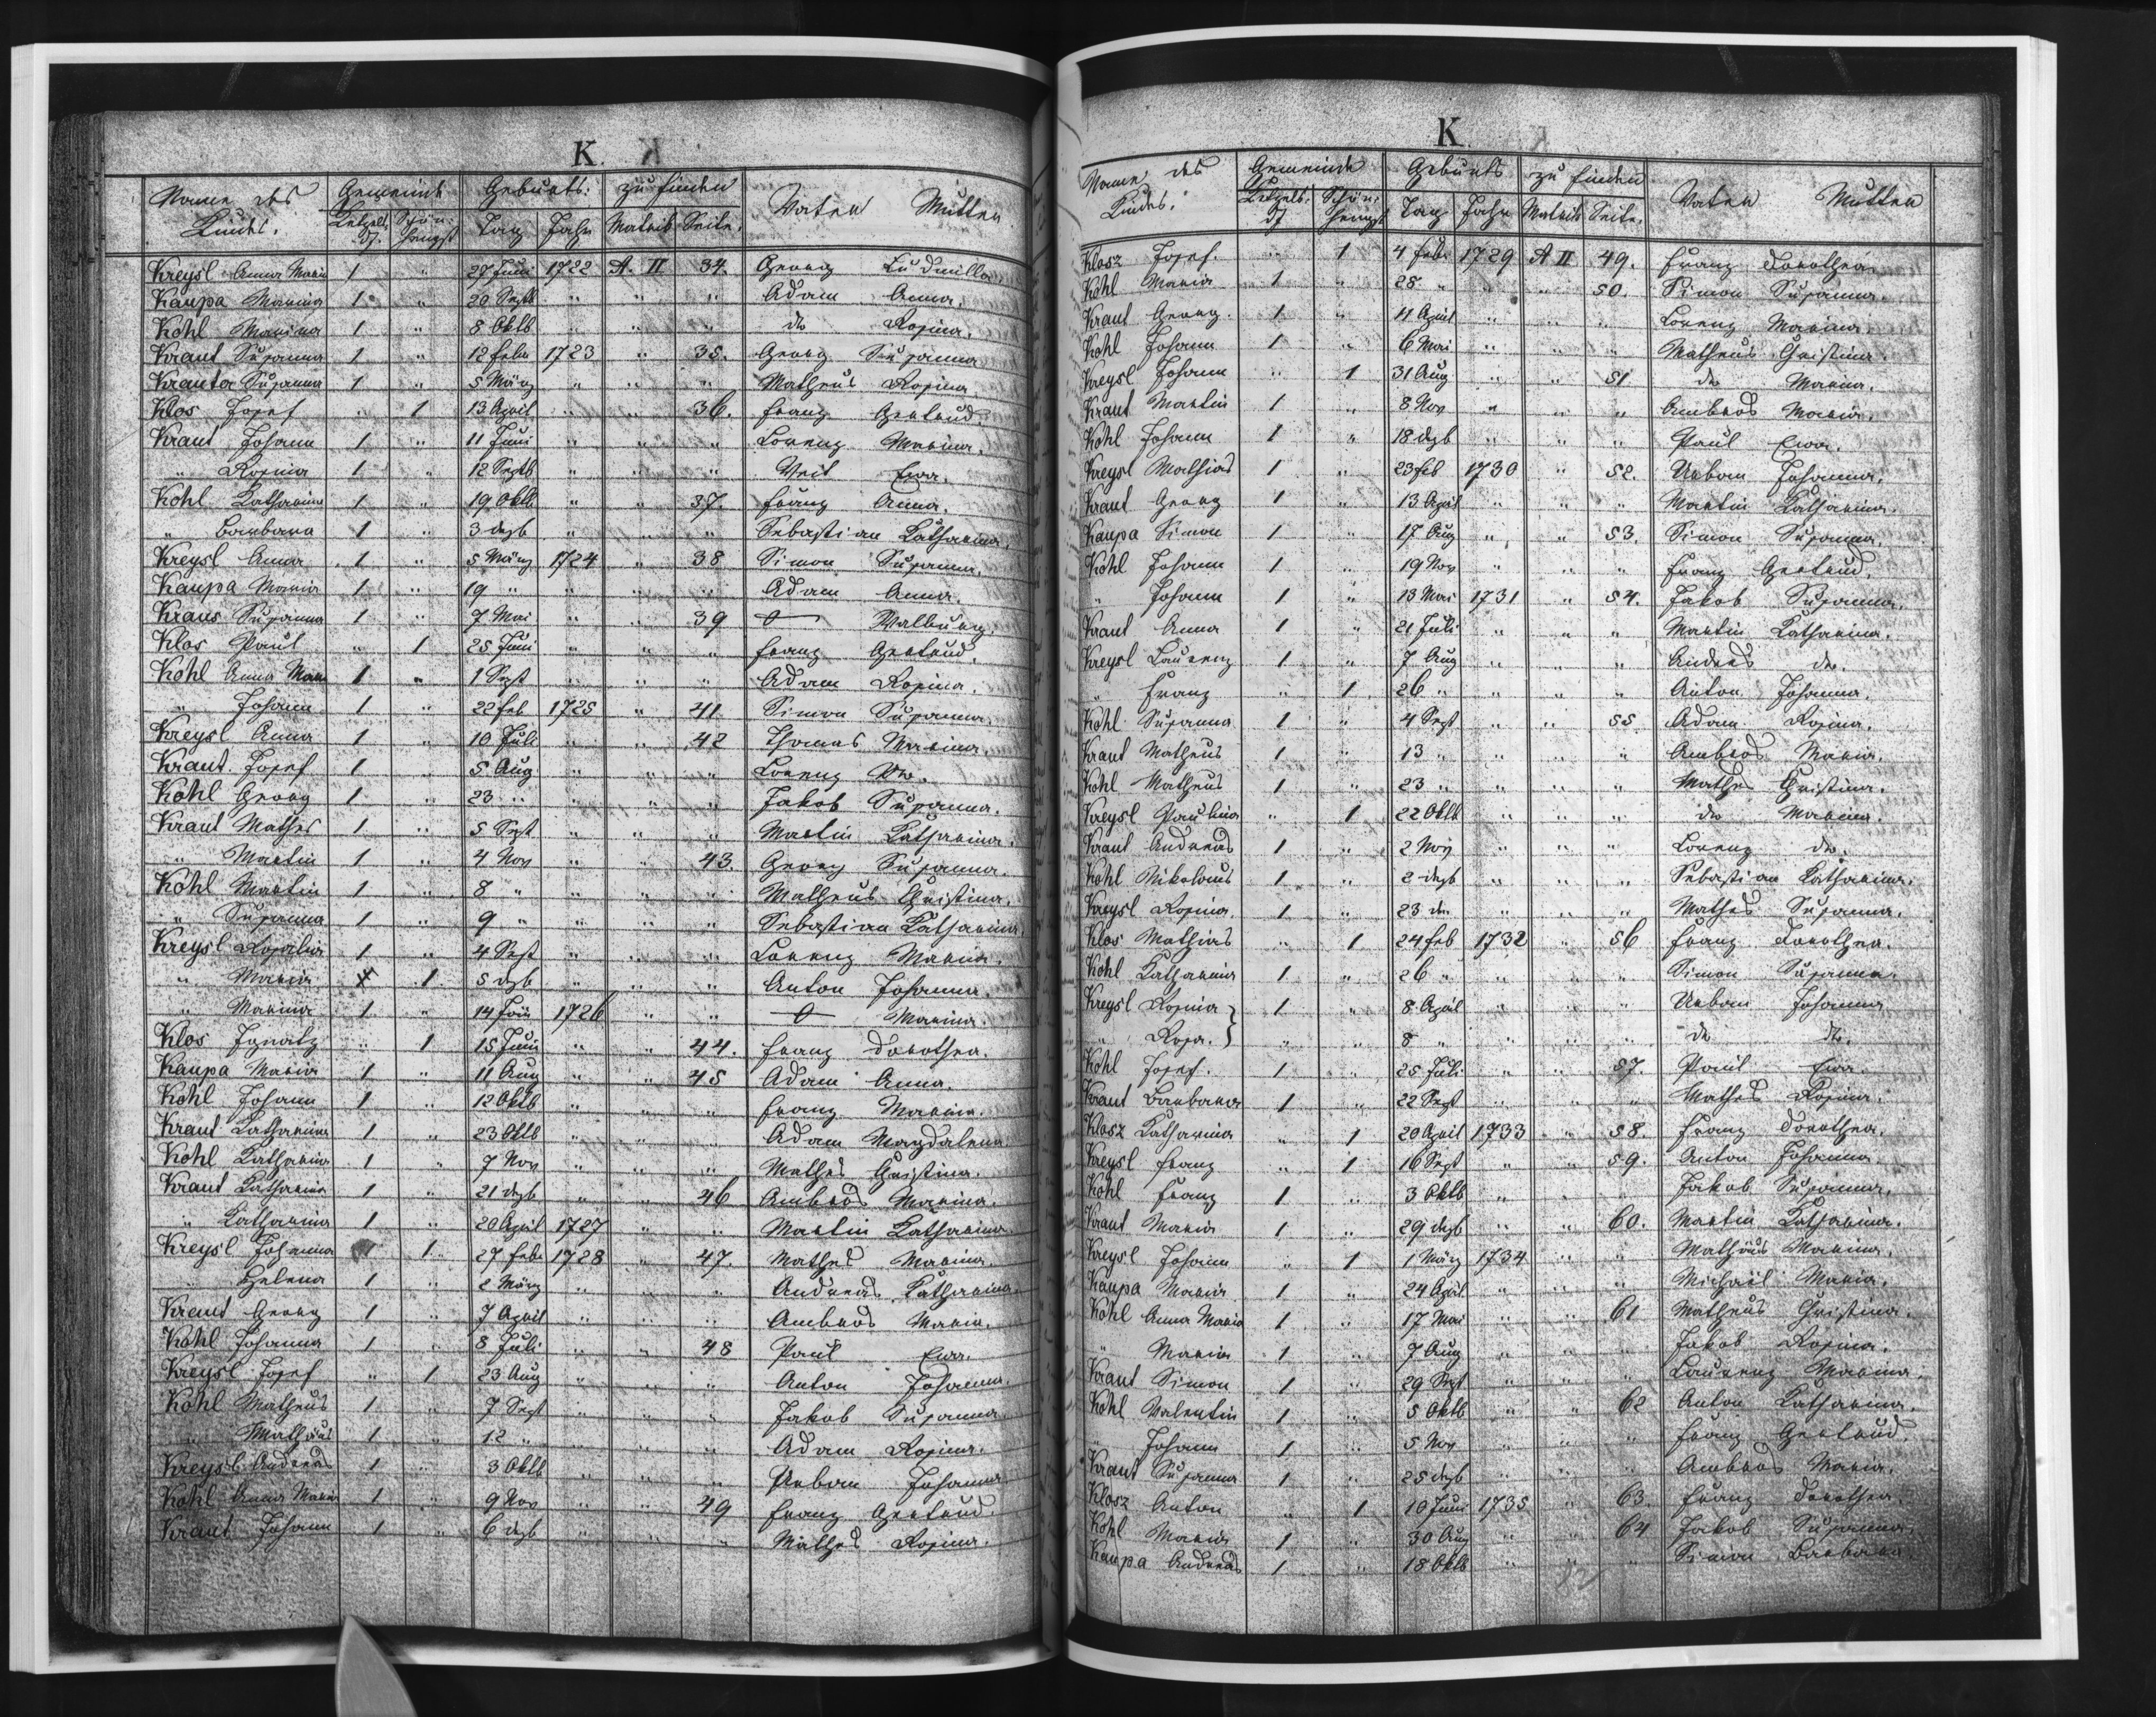 K.
Name des Kindes. Gemeinde Geburts: zu finden Vater Mutter
Ketzels: df. Schön: hengst Tag Jahr Matrik Seite.
Kreysl Anna Maria 1 " 27 Juni 1722 A. II 34. Georg Ludmilla.
Kaupa Marina 1 " 20 Septb " " " Adam Anna.
Köhl Marina 1 " 8 Oktb " " " do Rosina.
Kraut Susanna 1 " 12 Febr 1723 " 35. Georg Susanna
Krauter Susanna 1 " 5 März " " " Matheus Rosina
Klos Josef " 1 13 April " " 36. Franz Gertrud.
Kraut Johann 1 " 11 Juni " " " Lorenz Marina.
" Rosina 1 " 12 Septb " " " Veit Ewa.
Köhl Katharina 1 " 19 Oktb " " 37. Franz Anna.
" Barbara 1 " 3 dezb " " " Sebastian Katharina.
Kreysl Anna 1 " 5 März 1724 " 38 Simon Susanna.
Kaupa Maria 1 " 19 " " " " Adam Anna.
Kraus Susanna 1 " 7 Mai " " 39 0 Walburg.
Klos Paul " 1 25 Juni " " " Franz Gertrud.
Köhl Anna Maria 1 " 1 Sept " " " Adam Rosina.
" Johann 1 " 22 feb 1725 " 41. Simon Susanna
Kreysl Anna 1 " 10 Juli " " 42 Thomas Marina.
Kraut Josef 1 " 5 Aug " " " Lorenz do.
Köhl Georg 1 " 23 " " " " Jakob Susanna.
Kraut Mathes 1 " 5 Sept " " " Martin Katharina.
" Martin 1 " 4 Nov " " 43. Georg Susanna.
Köhl Martin 1 " 8 " " " " Matheus Christina.
" Susanna 1 " 9 " " " " Sebastian Katharina.
Kreysl Rosalia 1 " 4 Sept " " " Lorenz Marina.
" Maria 1 5 dezb " " " Anton Johanna.
" Marina 1 " 14 Jän 1726 " " 0 Marina.
Klos Ignatz " 1 15 Juni " " 44. Franz Dorothea.
Kaupa Maria 1 " 11 Aug " " 45 Adam Anna.
Köhl Johann 1 " 12 Oktb " " " Franz Marina.
Kraut Katharina 1 " 23 Oktb " " " Adam Magdalena
Köhl Katharina 1 " 7 Nov " " " Mathes Christina.
Kraut Katharina 1 " 21 dezb " " 46 Ambros Marina.
" Katharina 1 " 20 April 1727 " " Martin Katharina.
Kreysl Johanna 1 27 Febr 1728 " 47. Mathes Marina.
" Helena 1 " 2 März " " " Andreas Katharina.
Kraut Georg 1 " 7 April " " " Ambros Maria.
Köhl Johanna 1 " 8 Juli " " 48 Paul Ewa.
Kreysl Josef " 1 23 Aug " " " Anton Johanna.
Köhl Matheus 1 " 7 Sept " " " Jakob Susanna.
" Mathäus 1 " 12 " " " " Adam Rosina.
Kreysl Andreas 1 " 3 Oktb " " " Urban Johanna
Köhl Anna Maria 1 " 9 Nov " " 49 Franz Gertrud.
Kraut Johann 1 " 6 dezb " " " Mathes Rosina.
K.
Name des Kindes. Gemeinde Geburts zu finden Vater Mutter
Ketzels: df Schön: hengst Tag Jahr Matrik Seite.
Klosz Josef. " 1 4 Febr 1729 A II 49. Franz Dorothea.
Köhl Maria 1 " 28 " " " 50. Simon Susanna.
Kraut Georg. 1 " 11 April " " " Lorenz Marina.
Köhl Johann 1 " 6 Mai " " " Matheus Christina.
Kreysl Johann " 1 31 Aug " " 51 do Marina.
Kraut Martin 1 " 8 Nov " " " Ambros Maria.
Köhl Johann 1 " 18 dezb " " " Paul Ewa.
Kreysl Mathias 1 " 23 feb 1730 " 52. Urban Johanna.
Kraut Georg 1 " 13 April " " " Martin Katharina.
Kaupa Simon 1 " 17 Aug " " 53. Simon Susanna.
Köhl Johann 1 " 19 Nov " " " Franz Gertrud.
" Johann 1 " 13 Mai 1731 " 54. Jakob Susanna.
Kraut Anna 1 " 21 Juli " " " Martin Katharina.
Kreysl Laurenz 1 " 7 Aug " " " Andreas do.
" Franz " 1 26 " " " " Anton Johanna.
Köhl Susanna 1 " 4 Sept " " 55 Adam Rosina.
Kraut Matheus 1 " 13 " " " " Ambros Maria.
Köhl Matheus 1 " 23 " " " " Mathes Christina.
Kreysl Paulina " 1 22 Oktb " " " do Marina.
Kraut Andreas 1 " 2 Nov " " " Lorenz do.
Köhl Nikolaus 1 " 2 dezb " " " Sebastian Katharina.
Kreysl Rosina. 1 " 23 do " " " Mathes Susanna.
Klos Mathias " 1 24 feb 1732 " 56 Franz Dorothea.
Köhl Katharina 1 " 26 " " " " Simon Susanna.
Kreysl Rosina } 1 " 8 April " " " Urban Johanna
" Rosa. } " " 8 " " " " do do.
Köhl Josef. 1 " 25 Juli " " 57. Paul Ewa.
Kraut Barbara 1 " 22 Sept " " " Mathes Rosina.
Klosz Katharina " 1 20 April 1733 " 58. Franz Dorothea.
Kreysl Franz " 1 16 Sept " " 59. Anton Johanna.
Köhl Franz 1 " 3 Oktb " " " Jakob Susanna.
Kraut Maria 1 " 29 dezb " " 60. Martin Katharina.
Kreysl Johann " 1 1 März 1734 " " Mathäus Marina.
Kaupa Maria 1 " 24 April " " " Michael Maria.
Köhl Anna Maria 1 " 17 Mai " " 61 Matheus Christina.
" Maria 1 " 7 Aug " " " Jakob Rosina.
Kraut Simon 1 " 29 Sept " " " Laurenz Marina.
Köhl Valentin 1 " 5 Oktb " " 62 Anton Katharina.
" Johann 1 " 5 Nov " " " Franz Gertrud.
Kraut Susanna 1 " 25 dezb " " " Ambros Maria.
Klosz Anton " 1 10 Juni 1735 " 63. Franz Dorothea.
Köhl Maria 1 " 30 Aug " " 64 Jakob Susanna
Kaupa Andreas 1 " 18 Oktb " " " Simon Barbara